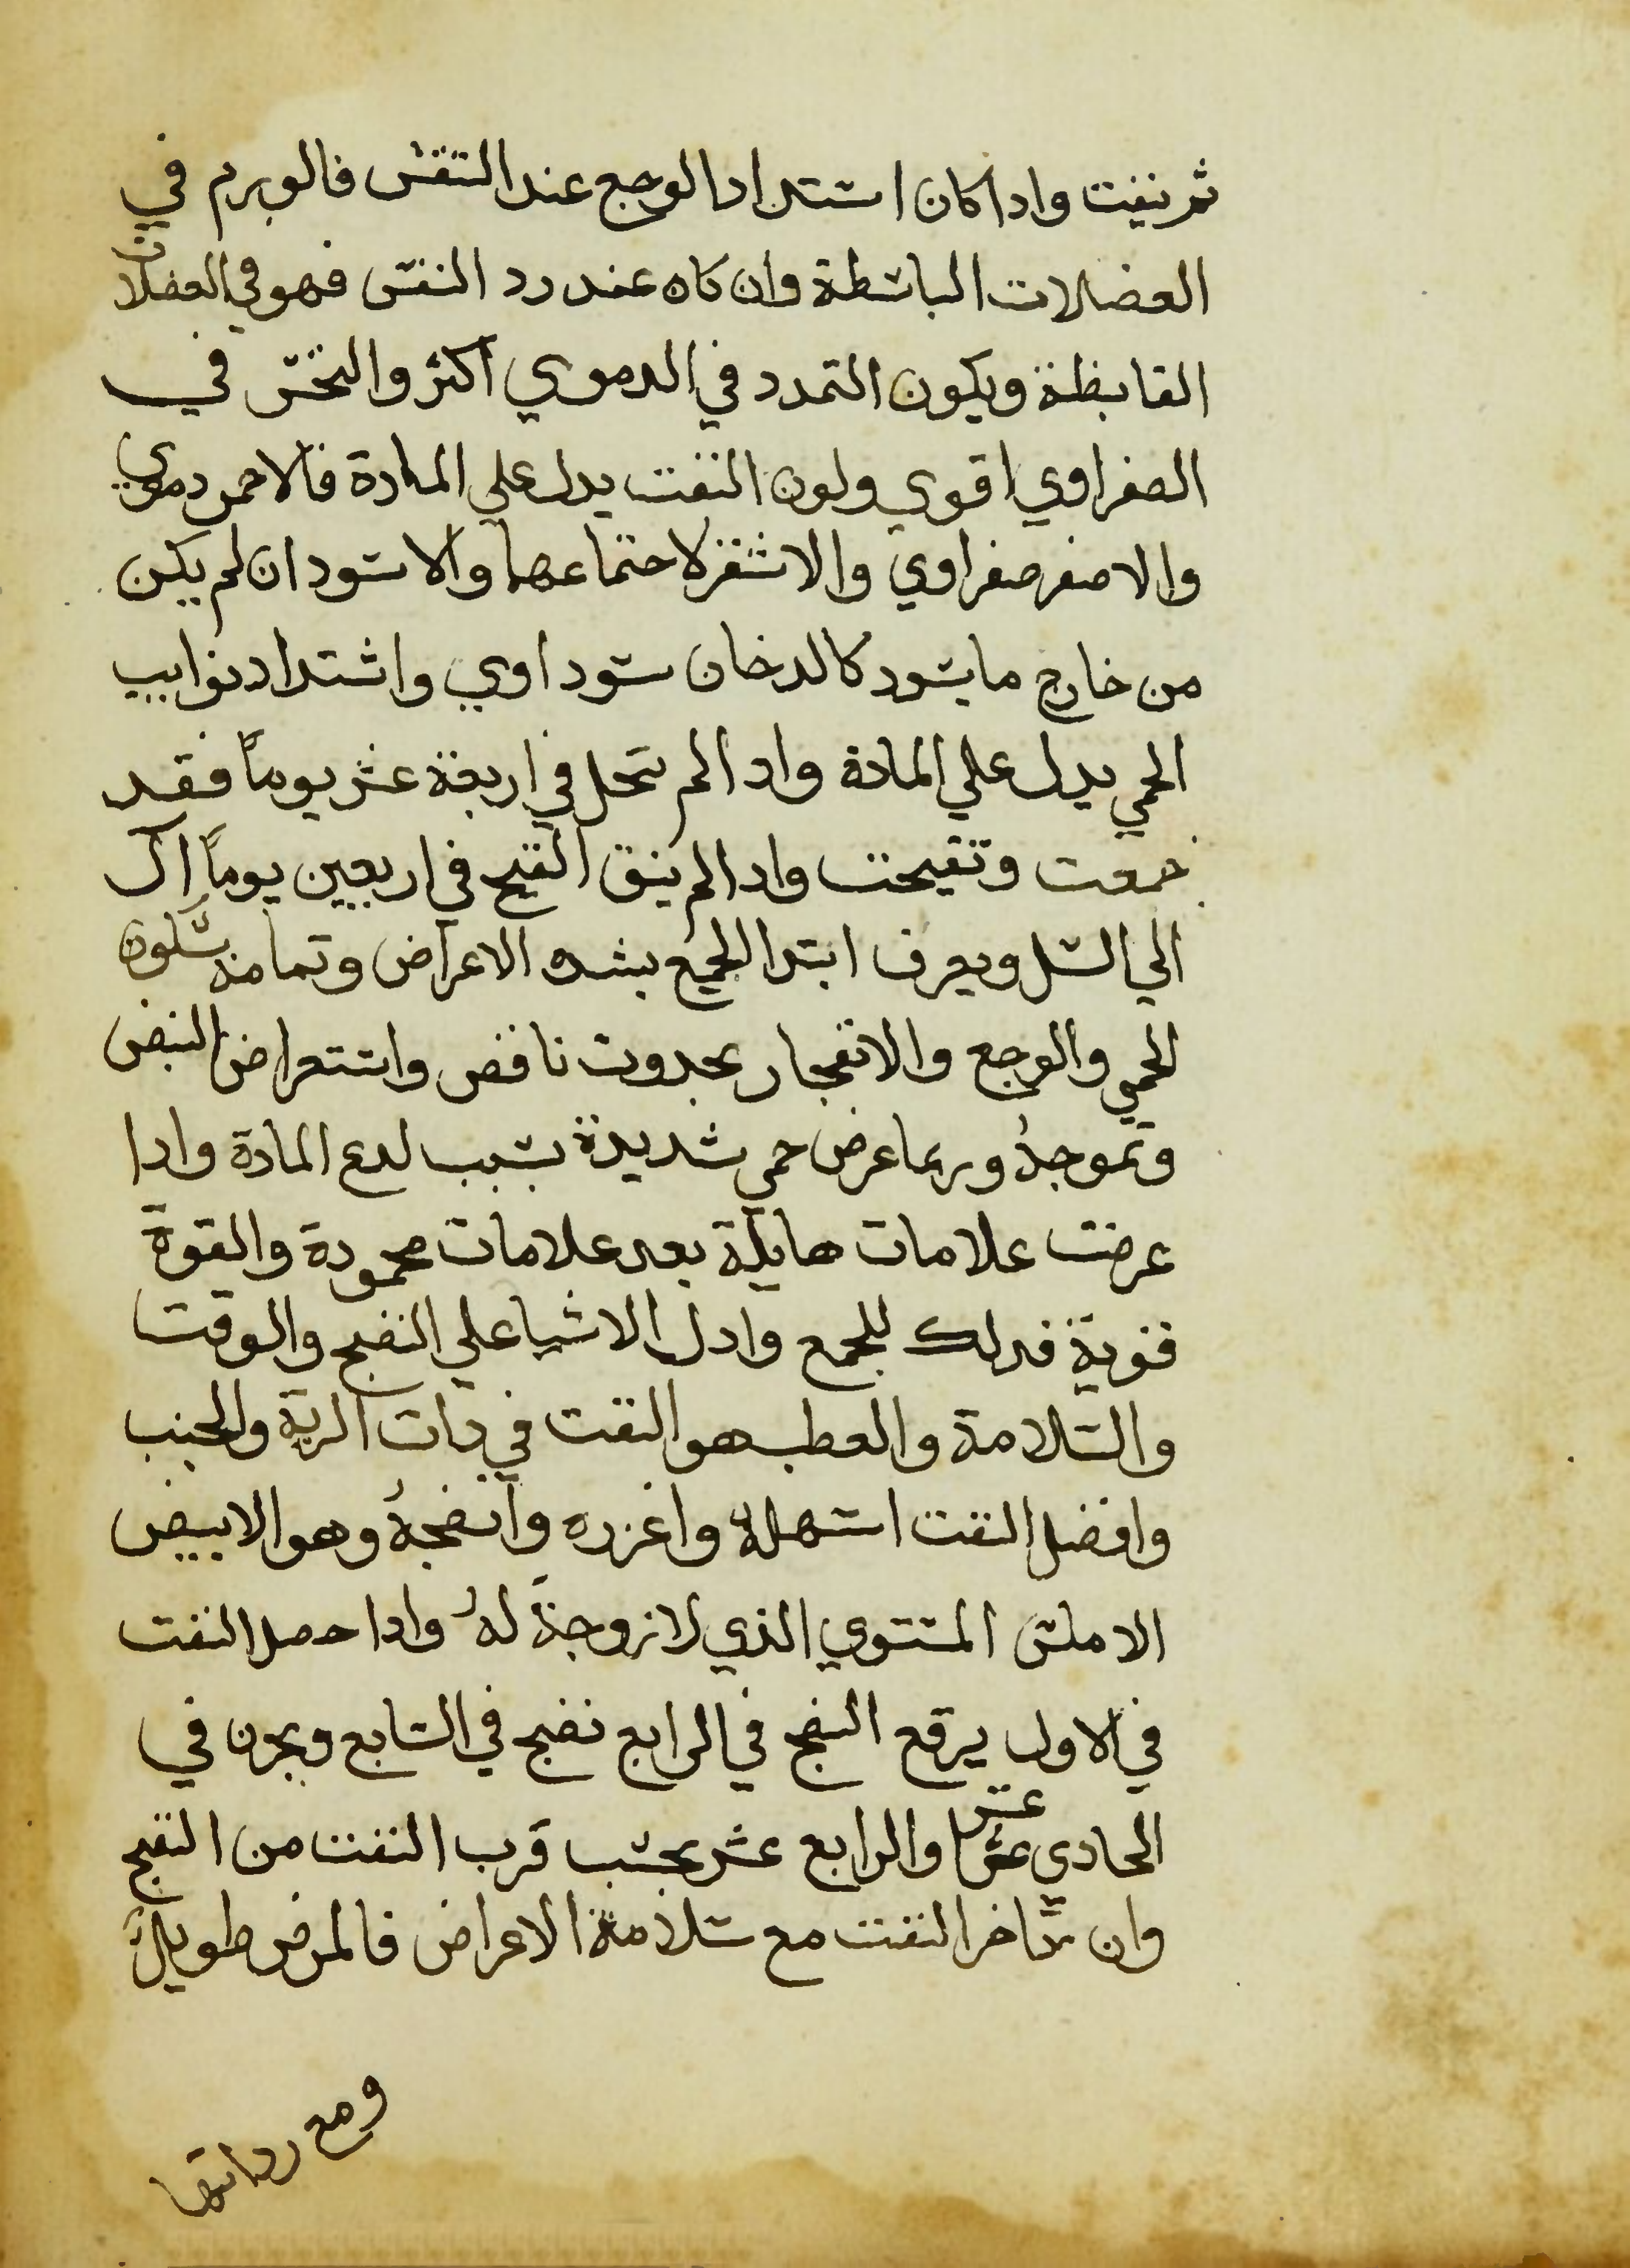 ثم نفث واداكان اشتداد الوجع عند التنفس فالورم في
العضلات الباسطة وان كان عند رد النفس فهو في العضلات
القابظة ويكون التمدد في الدموي اكثر والنخس في
الصفراوي اقوي ولون النفث يدل علي المادة فالاحمر دموي
والاصفر صفراوي والاشقر لاجتماعهما والاسود ان لم يكن
من خارج ما يسود كالدخان سوداوي واشتداد نوايب
الحمي يدل علي المادة وادا لم تنحل في اربعة عشر يوماً فقد
جمعت وتقيحت وادا لم ينق القيح في اربعين يوماً ال
الي السل ويعرف ابتدا الجمع بشده الاعراض وتمامه بسكون
الحمي والوجع والانفجار بحدوث نافض واستعراض النبض
وتموجهُ وربما عرض حمي شديدة بسبب لدع المادة وادا
عرضت علامات هايلة بعد علامات محمودة والقوة
قوية فدلك للجمع وادل الاشيا علي النضج والوقت
والسلامة والعطب هو النفث في دات الرية والجنب
وافضل النفث اسهلهُ واغزره وانضجهُ وهو الابيض
الاملس المستوي الذي لا لزوجة لهُ وادا حصل النفث
في الاول يرقع النضج في الرابع نضج في السابع وبحرن في
الحادي عشر والرابع عشر بحسب قرب النفث من النضج
وان تاخر النفث مع سلامة الاعراض فالمرض طويل
ومع رداتها